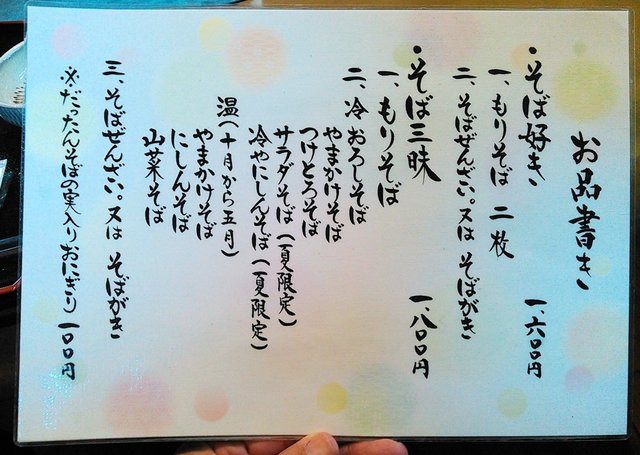 お品書き
・そば好き 一、六〇〇円
一、もりそば 二枚
二、そばぜんざい。又は そばがき
・そば三昧 一、八〇〇円
一、もりそば
二、冷 おろしそば
やまかけそば
つけとろそば
サラダそば(夏限定)
冷やにしんそば(夏限定)
温(十月から五月)
やまかけそば
にしんそば
山菜そば
三、そばぜんざい。又は そばがき
※だったんそばの実入りおにぎり 一〇〇円